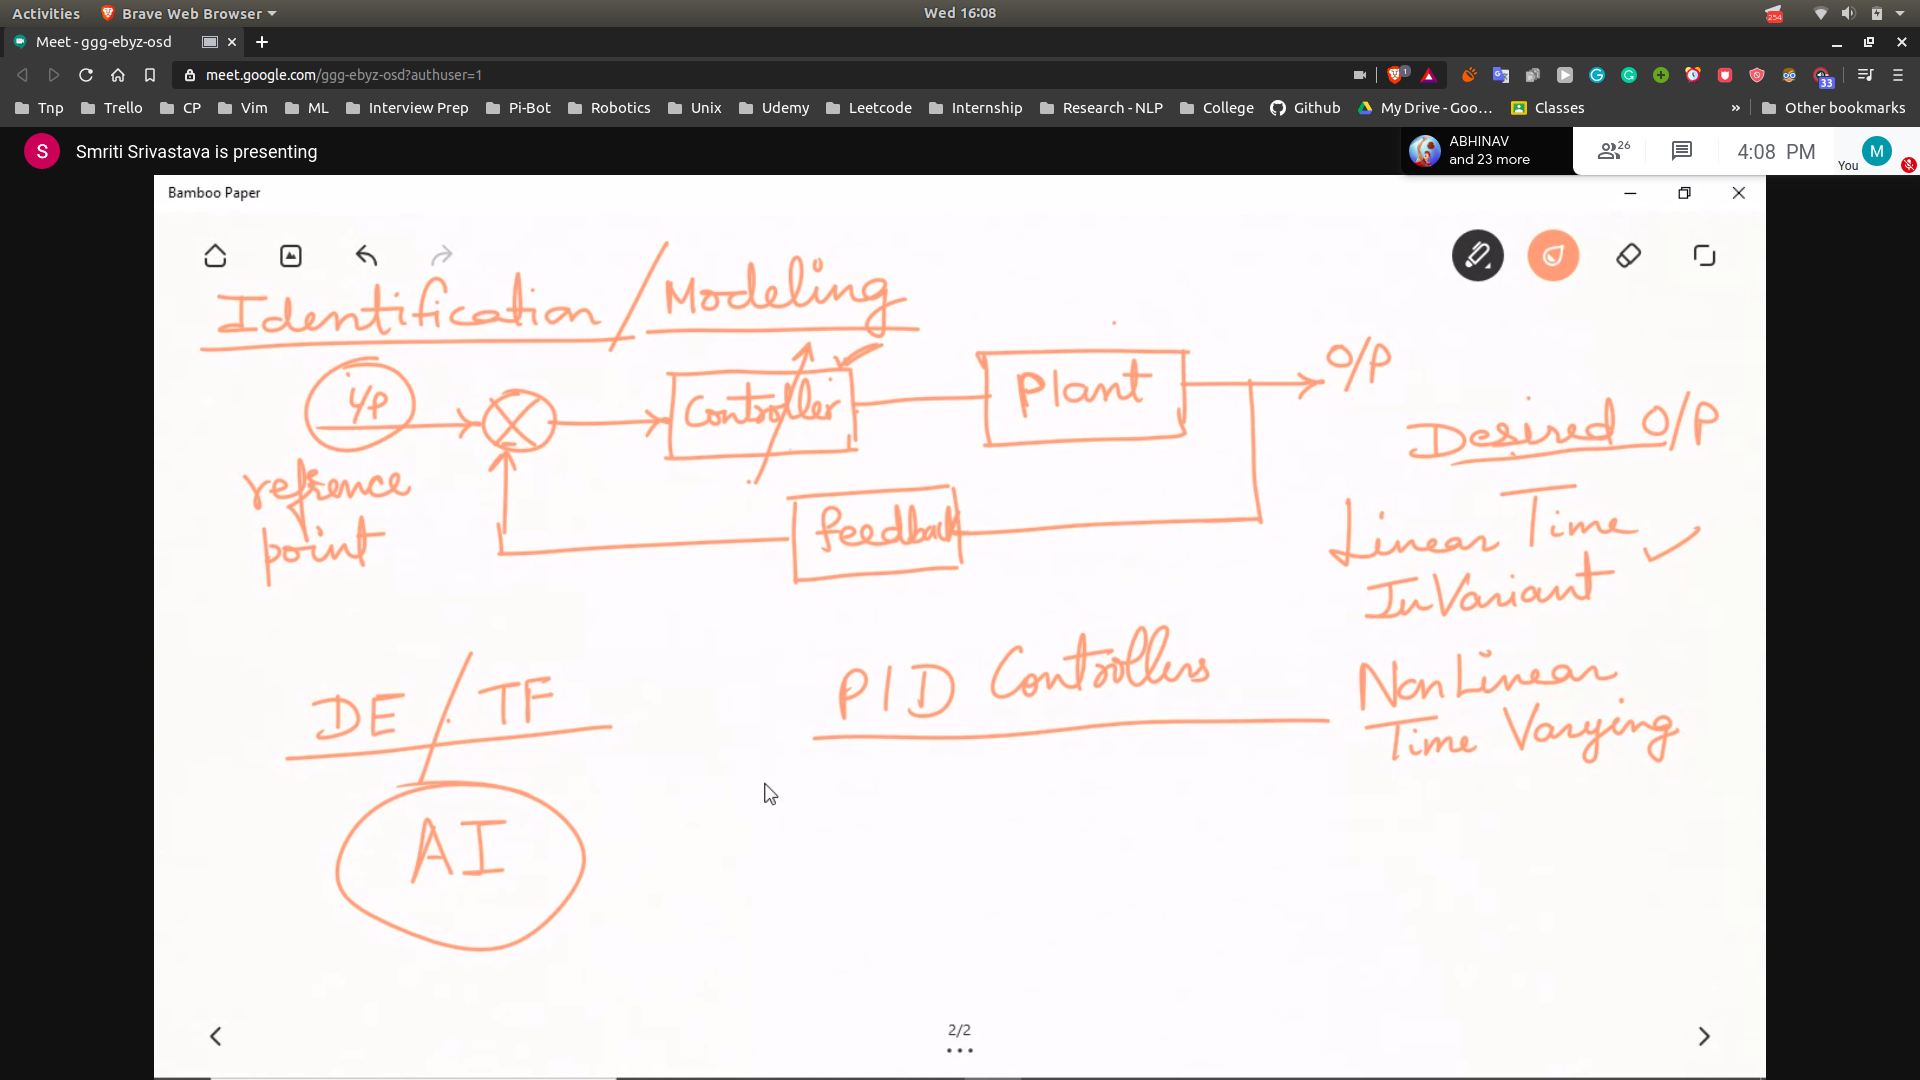 Activities
Brave Web Browser
Wed 16:08
254
Meet - ggg-ebyz-osd
meet.google.com/ggg-ebyz-osd?authuser=1
1
33
Tnp
Trello
CP
Vim
ML
Interview Prep
Pi-Bot
Robotics
Unix
Udemy
Leetcode
Internship
Research - NLP
College
Github
My Drive - Goo...
Classes
»
Other bookmarks
S
Smriti Srivastava is presenting
ABHINAV
and 23 more
26
4:08 PM
You
M
Bamboo Paper
Identification / Modeling
i/p
Controller
Plant
O/P
Desired O/P
refrence
point
feedback
Linear Time
InVariant
DE / TF
PID Controllers
Non Linear
Time Varying
AI
2/2